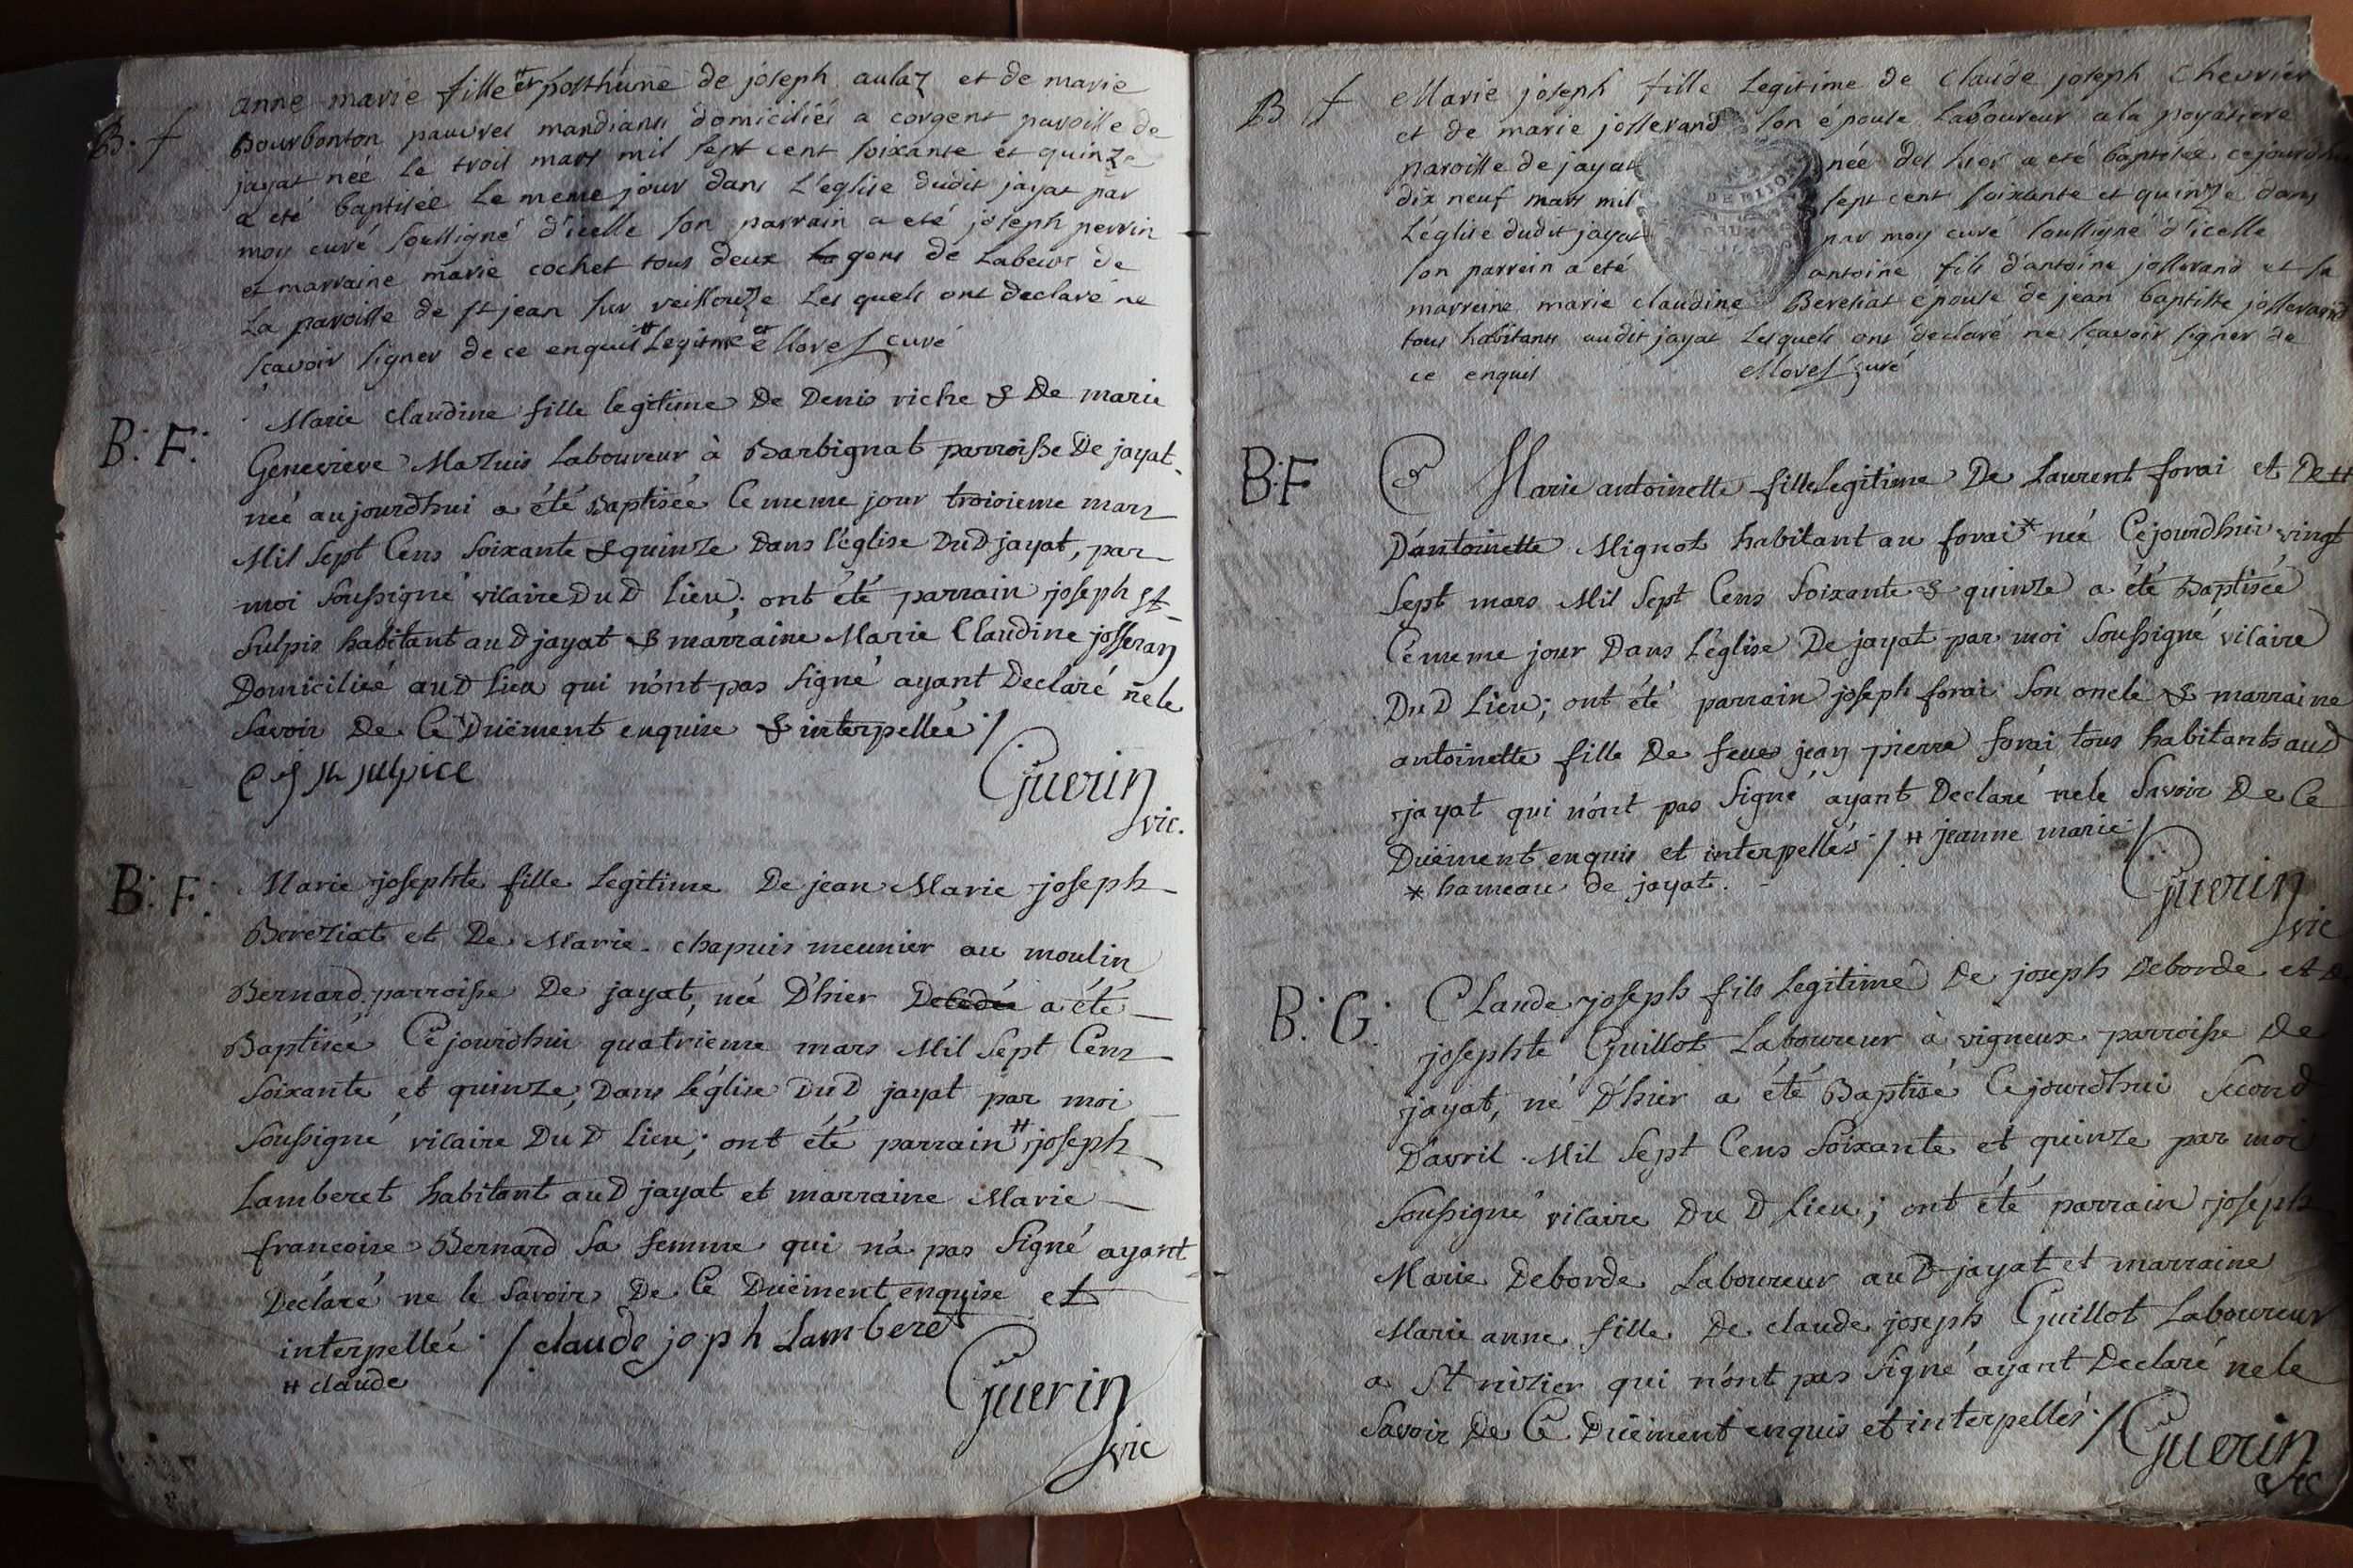 B. f
anne marie fille # posthume de joseph aulaz et de marie
Bourbonton pauvres mandians domiciliés a corgent paroisse de
jayat née le trois mars mil sept cent soixante et quinze
a eté baptisée le meme jour dans l'eglise dudit jayat par
moy curé soussigné d'icelle son parrain a eté joseph perrin
et marraine marie cochet tous deux gens de labeur de
la paroisse de st jean sur veillouze les quels ont declaré ne
sçavoir signer de ce enquis # legitime et Morel curé
B: F:
Marie claudine fille legitime De Denis riche & De marie
Genevieve Mazuis Laboureur à Barbignat parroisse De jayat
née aujourdhui a été Baptisée Ce meme jour troisieme mars
Mil Sept Cens Soixante & quinze Dans l'église DuD jayat, par
moi Soussigné vicaire DuD Lieu; ont été parrain joseph St
Sulpis habitant au D jayat & marraine Marie Claudine josseran
Domiciliée auD Lieu qui n'ont pas Signé ayant Declaré ne le
Savoir De Ce Düement enquise & interpellée /
sulpice
Guerin
vic.
B: F:
Marie josephte fille Legitime De jean Marie joseph
Bereziat et De Marie chapuis meunier au moulin
Bernard parroisse De jayat, née D'hier a été
Baptisée Cejourdhui quatrieme mars Mil Sept Cens
Soixante et quinze, Dans l'église DuD jayat par moi
Soussigné vicaire DuD Lieu; ont été parrain # joseph
Lamberet habitant auD jayat et marraine Marie
francoise Bernard Sa femme qui n'a pas Signé ayant
Déclaré ne le Savoir De Ce Düement enquise et
interpellée / claude joph Lamberet
# claude
Guerin
vic
B f
Marie joseph fille Legitime de Claude joseph Chevrier
et de marie josserand son épouse Laboureur a la poyatiere
paroisse de jayat née des hier a eté baptisée cejourdhui
dix neuf mars mil sept cent soixante et quinze dans
L'église dudit jayat par moy curé soussigné d'icelle
son parrein a eté antoine fils d'antoine josserand et sa
marreine marie claudine Beresiat epouse de jean baptiste josserand
tous habitants audit jayat Lesquels ont declaré ne sçavoir signer de
ce enquis Morel curé
B: F
Marie antoinette fille Legitime De Laurent forai et De #
D'antoinette Mignot habitant au forai * née Cejourdhui vingt
Sept mars Mil Sept Cens Soixante & quinze a été Baptisée
Ce meme jour Dans L'église De jayat par moi Soussigné vicaire
DuD Lieu; ont été parrain joseph forai Son oncle & marraine
antoinette fille De feue jean pierre forai tous habitants auD
jayat qui n'ont pas Signé ayant Declaré ne le Savoir De Ce
Düement enquis et interpellés / # jeanne marie /
* hameau de jayat.
Guerin
vic
B: G:
Claude joseph fils Legitime De joseph Deborde et De
josephte Guillot Laboureur à vigneux parroisse De
jayat, né D'hier a été Baptisé Cejourdhui Second
D'avril Mil Sept Cens Soixante et quinze par moi
Soussigné vicaire Du D Lieu; ont été parrain joseph
Marie Deborde Laboureur auD jayat et marraine
Marie anne fille De claude joseph Guillot Laboureur
a St nizier qui n'ont pas Signé ayant Declaré ne le
Savoir De Ce Düement enquis et interpellés /
Guerin
vic